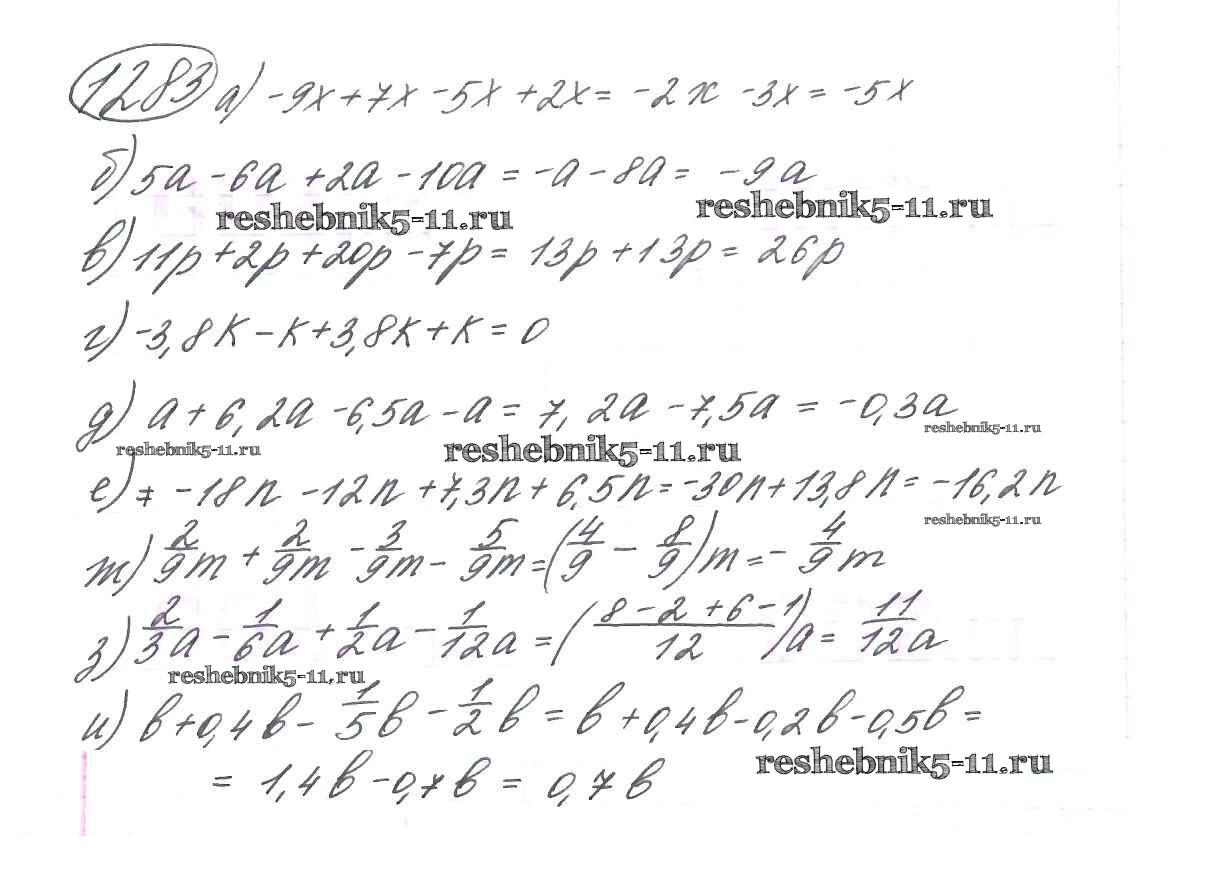 1283 а) -9x+7x -5x +2x= -2x -3x= -5x
б) 5a -6a +2a -10a = -a -8a = -9a
reshebnik5-11.ru reshebnik5-11.ru
в) 11p+2p+20p -7p = 13p+13p = 26p
г) -3,8k-k+3,8k+k=0
д) a+6,2a -6,5a -a = 7,2a -7,5a = -0,3a
reshebnik5-11.ru reshebnik5-11.ru reshebnik5-11.ru
е) = -18n -12n +7,3n+6,5n=-30n+13,8n= -16,2n
reshebnik5-11.ru
ж) 2/9m + 2/9m - 3/9m - 5/9m=(4/9 - 8/9)m= - 4/9m
з) 2/3a - 1/6a + 1/2a - 1/12a = (8-2+6-1/12)a = 11/12a
reshebnik5-11.ru
и) b+0,4b- 1/5b - 1/2b = b+0,4b-0,2b-0,5b =
= 1,4b-0,7b = 0,7b
reshebnik5-11.ru